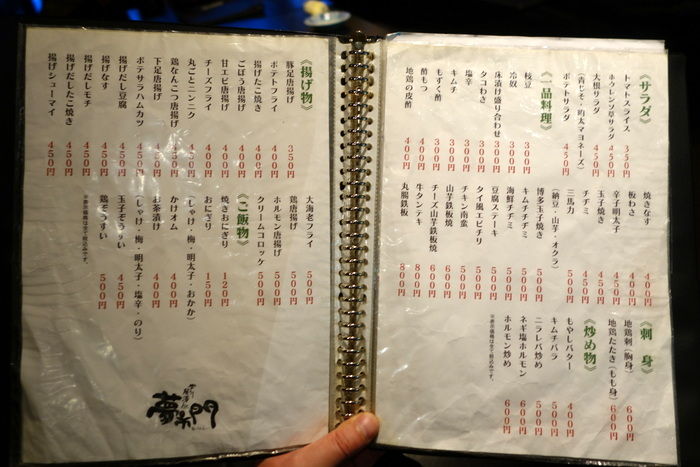 《サラダ》
トマトスライス 350円
ホウレンソ草サラダ 450円
大根サラダ 450円
(青じそ・明太マヨネーズ)
ポテトサラダ 450円
《一品料理》
枝豆 300円
冷奴 300円
床漬け盛り合わせ
タコわさ
塩辛
キムチ
もずく酢
酢もつ 400円
地鶏の皮酢 400円
焼きなす 400円
板わさ 400円
辛子明太子 450円
玉子焼き 450円
チヂミ 450円
三馬力 500円
(納豆・山芋・オクラ)
博多玉子焼き 500円
キムチチヂミ 500円
海鮮チヂミ 500円
豆腐ステーキ 500円
タイ風エビチリ 500円
チキン南蛮 500円
山芋鉄板焼 600円
チーズ山芋鉄板焼 600円
牛タンテキ 800円
丸腸鉄板 800円
《刺身》
地鶏刺(胸身) 600円
地鶏たたき(もも身) 600円
《炒め物》
もやしバター 400円
キムチバラ 500円
ニラレバ炒め 500円
ネギ塩ホルモン 600円
ホルモン炒め 600円
※表示価格は全て税込みです。
《揚げ物》
豚足唐揚げ 350円
ポテトフライ 400円
揚げたこ焼き 400円
ごぼう唐揚げ 400円
甘エビ唐揚げ 400円
チーズフライ 400円
丸ごとニンニク 450円
鶏なんこつ唐揚げ 450円
下足唐揚げ 450円
ポテサラハムカツ 450円
揚げだし豆腐 450円
揚げなす 450円
揚げだしモチ 450円
揚げだしたこ焼き 450円
揚げシューマイ 450円
大海老フライ 500円
鶏唐揚げ 500円
ホルモン唐揚げ 500円
クリームコロッケ 500円
《ご飯物》
焼きおにぎり 120円
おにぎり 150円
(しゃけ・梅・明太子・おかか)
かけオム 400円
お茶漬け 400円
(しゃけ・梅・明太子・塩辛・のり)
玉子ぞうすい 450円
鶏ぞうすい 500円
※表示価格は全て税込みです。